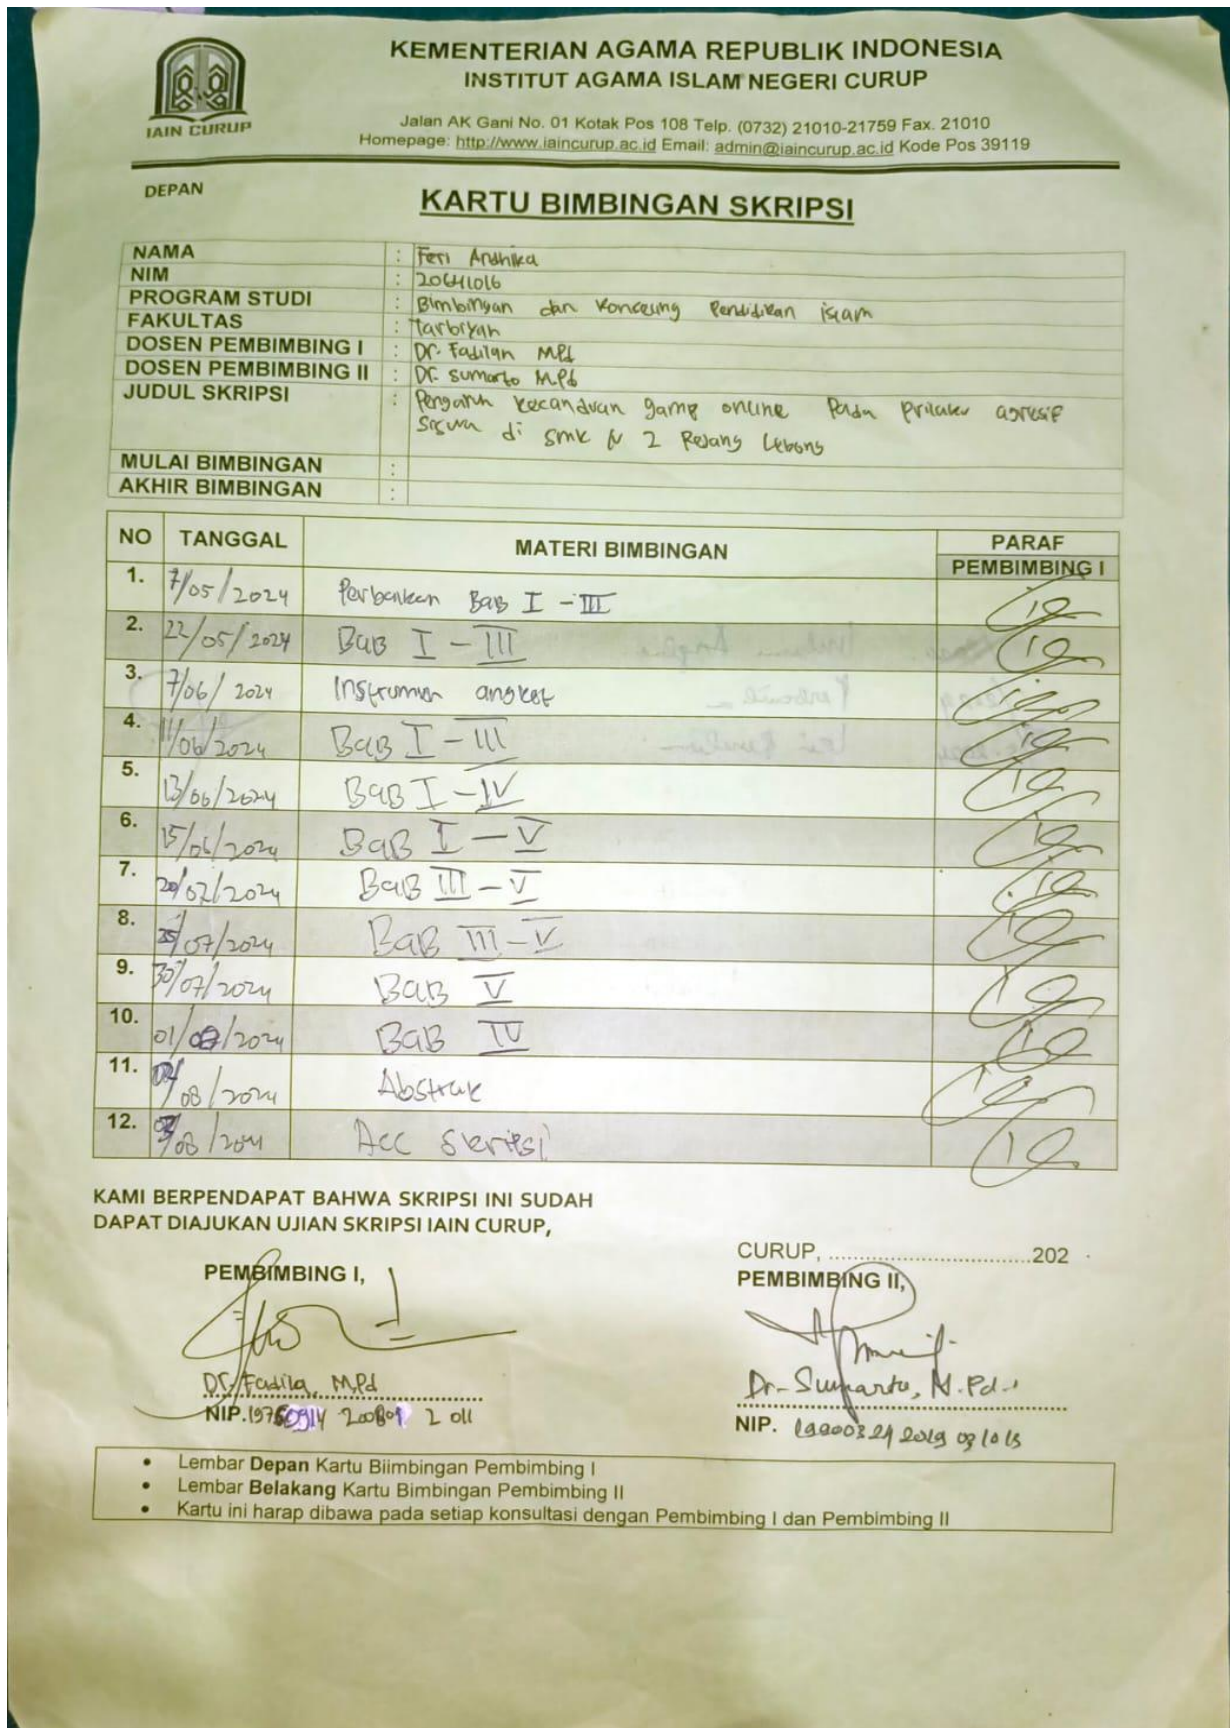 KEMENTERIAN AGAMA REPUBLIK INDONESIA
INSTITUT AGAMA ISLAM NEGERI CURUP
IAIN CURUP
Jalan AK Gani No. 01 Kotak Pos 108 Telp. (0732) 21010-21759 Fax. 21010
Homepage: http://www.iaincurup.ac.id Email: admin@iaincurup.ac.id Kode Pos 39119
DEPAN
KARTU BIMBINGAN SKRIPSI
NAMA : Feri Andhika
NIM : 20641016
PROGRAM STUDI : Bimbingan dan Konseling Pendidikan islam
FAKULTAS : Tarbiyah
DOSEN PEMBIMBING I : Dr. Fadilah M.Pd
DOSEN PEMBIMBING II : Dr. Sumarto M.Pd
JUDUL SKRIPSI : Pengaruh kecanduan game online Pada Prilaku agresif
siswa di smk N 2 Rejang Lebong
MULAI BIMBINGAN :
AKHIR BIMBINGAN :
NO TANGGAL MATERI BIMBINGAN PARAF
PEMBIMBING I
1. 7/05/2024 Perbaikan Bab I - III
2. 22/05/2024 BaB I - III
3. 7/06/2024 Instrumen angket
4. 11/06/2024 BaB I - III
5. 13/06/2024 BaB I - IV
6. 15/06/2024 BaB I - V
7. 20/07/2024 BaB III - V
8. 25/07/2024 BaB III - V
9. 30/07/2024 BaB V
10. 01/08/2024 BaB IV
11. /08/2024 Abstrak
12. /08/2024 Acc Skripsi
KAMI BERPENDAPAT BAHWA SKRIPSI INI SUDAH
DAPAT DIAJUKAN UJIAN SKRIPSI IAIN CURUP,
CURUP, ................................202
PEMBIMBING I,
PEMBIMBING II,
Dr. Fadila, M.Pd
NIP. 19760914 200801 2 011
Dr. Sumarto, M.Pd.I
NIP. 19900324 2019 03 1013
• Lembar Depan Kartu Biimbingan Pembimbing I
• Lembar Belakang Kartu Bimbingan Pembimbing II
• Kartu ini harap dibawa pada setiap konsultasi dengan Pembimbing I dan Pembimbing II